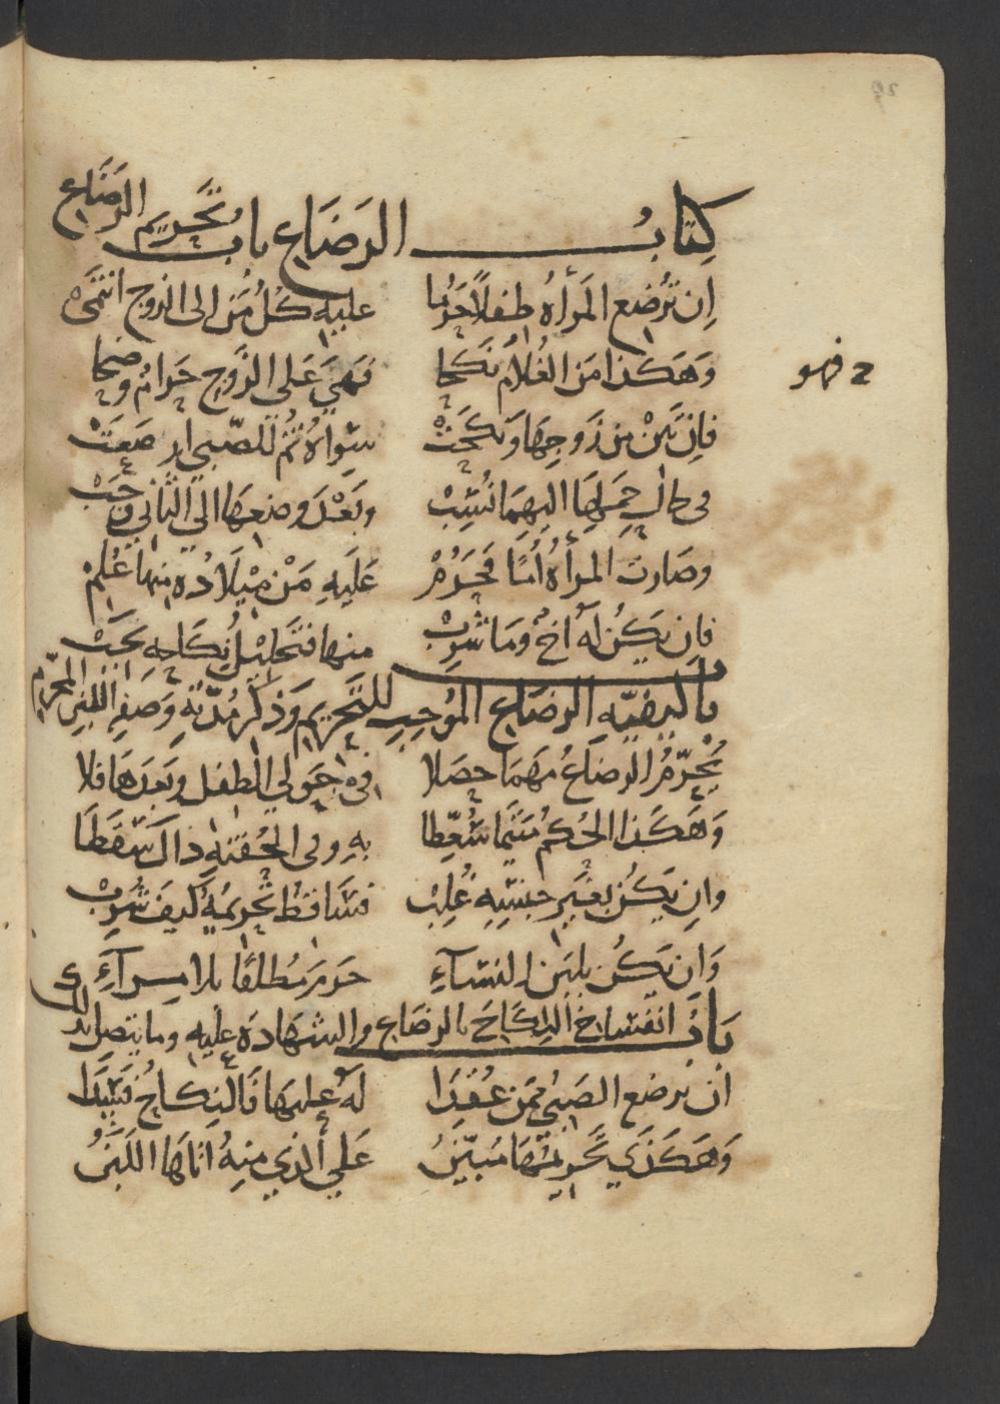 كِتَابُ الرَضَاعِ بابُ تَحَريم الرَضَاع
اِن تُرضع المَرأةُ طفلاً حَرُما عليهِ كُلُ مَن الى الزوج انتمَى
وَهَكذا مَن الغُلاَم نَكَحا فَهيَ عَلى الزَّوج حَرَامٌ وضحا
فهو
فاِن تَبِنْ مِن زَوجِهَا وَنكحَتْ سِواهُ ثُمَّ للصّبي ارضعَتْ
في حال حَملِهَا اليهِمَا نُسِبْ وبَعْدَ وضعهَا الى الثّاني وجَبْ
وصَارت المرأةُ اُمًا فحَرُمْ عَلَيهِ مَنْ مِيْلاَدُه منها عُلِمْ
فان يَكُن لَهُ اخٌ ومَا شَرِبْ منها فتَحليْلُ نِكَاحه يَجبْ
بابُ كيفيّةِ الرضَاع المُوجبِ للتَحريم وَذكر مُدّتهِ وَصَفةِ اللبن المحرّم
يُحرّمُ الرضاعُ مهمَا حصَلا في حَولي الطفل وبَعدهَا فلا
وَهَكَذا الحُكمُ متَى مَا سُعِّطا بهِ وفي الحُقنةِ ذاكَ سَقَطَا
وانِ يَكُن بغَيرِ جِنسِهِ غُلِبْ فسَاقطٌ تحريمُهُ كَيفَ شُرِبْ
وَان يَكُن بلَبَن النسَآءِ حَرمَ مُطلقًا بلا مِرآءِ
بَابُ انفسَاخِ النِكَاحَ بالرضَاع والشهَادَة عليهِ وما يتصل بذلك
ان يرضع الصَبيُ ممَن عُقِدَا لَهُ عليهَا فَالنِكاحُ فَسَدَا
وَهَكَذَي تَحريمُهَا مُبيّنُ عَلى الذي مِنهُ اتَاهَا اللبَنُ